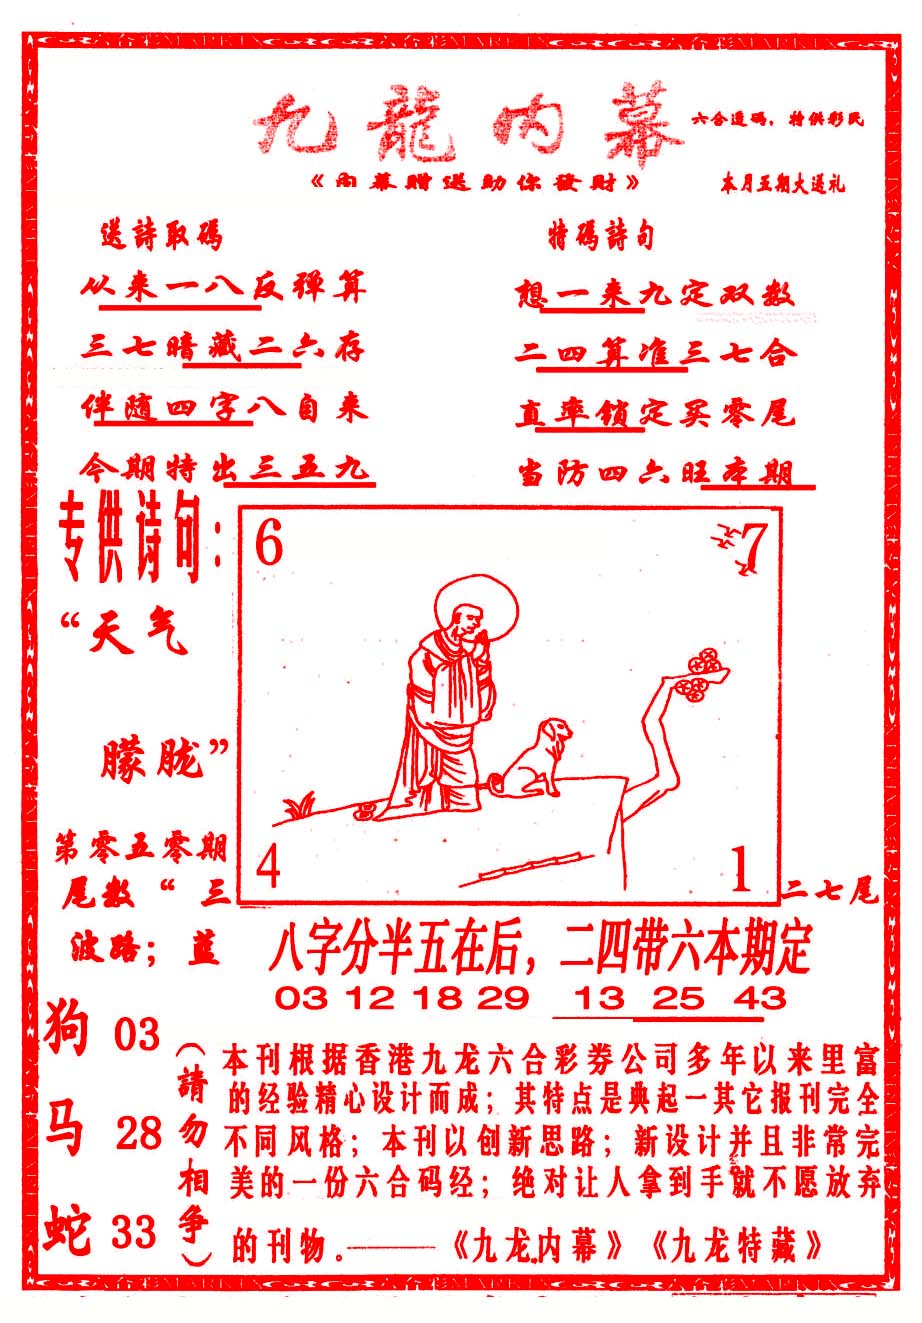 九龍内幕
六合透码，特供彩民
《内幕赠送助你發財》
本月五期大送礼
送詩取碼
从来一八反弹算
三七暗藏二六存
伴随四字八自来
今期特出三五九
特碼詩句
想一来九定双数
二四算准三七合
直率锁定买零尾
当防四六旺本期
专供诗句：
“天气
朦胧”
6
7
4
1
第零五零期
尾数“三
二七尾
波路；蓝
八字分半五在后，二四带六本期定
03 12 18 29 13 25 43
狗 03
马 28
蛇 33
（請勿相争）
本刊根据香港九龙六合彩券公司多年以来里富
的经验精心设计而成；其特点是典起一其它报刊完全
不同风格；本刊以创新思路；新设计并且非常完
美的一份六合码经；绝对让人拿到手就不愿放弃
的刊物。——《九龙内幕》《九龙特藏》